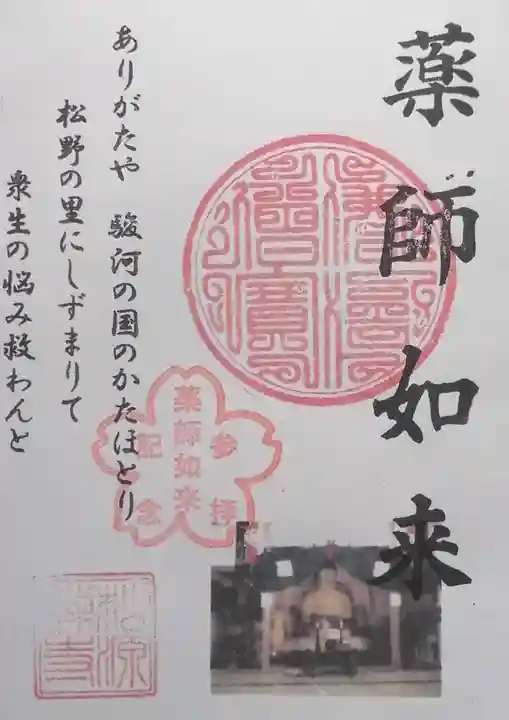 薬師如来
ありがたや 駿河の国のかたほとり
松野の里にしずまりて
衆生の悩み救わんと
参拝
薬師如来
記念
佛法僧寳